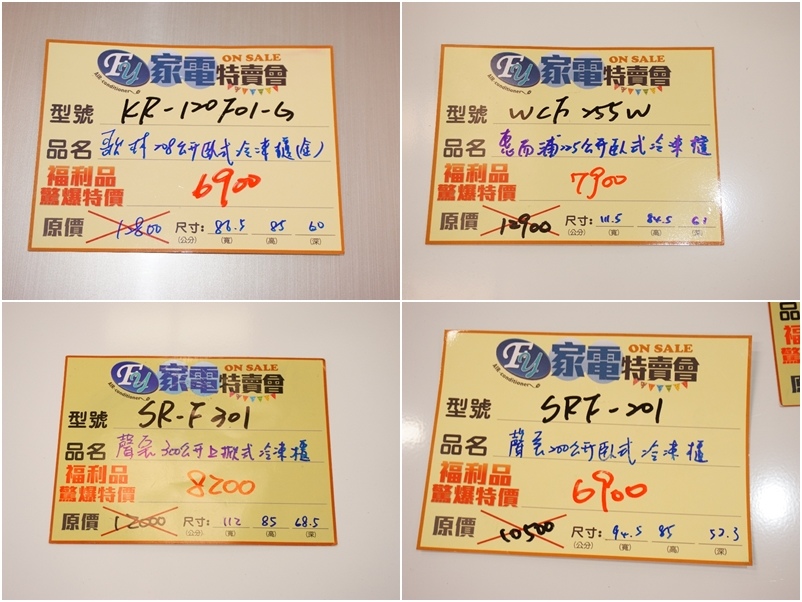 Fy 家電特賣會 ON SALE
air conditioner
型號 KR-120F01-G
品名 歌林208公升臥式冷凍櫃(金)
福利品 驚爆特價 6900
原價 13800 尺寸:(公分) 86.5(寬) 85(高) 60(深)
Fy 家電特賣會 ON SALE
air conditioner
型號 WCF255W
品名 惠而浦225公升臥式冷凍櫃
福利品 驚爆特價 7900
原價 12900 尺寸:(公分) 111.5(寬) 84.5(高) 61(深)
Fy 家電特賣會 ON SALE
air conditioner
型號 SR-F301
品名 聲寶300公升上掀式冷凍櫃
福利品 驚爆特價 8200
原價 12000 尺寸:(公分) 112(寬) 85(高) 68.5(深)
Fy 家電特賣會 ON SALE
air conditioner
型號 SRF-201
品名 聲寶200公升臥式冷凍櫃
福利品 驚爆特價 6900
原價 10500 尺寸:(公分) 94.5(寬) 85(高) 52.3(深)